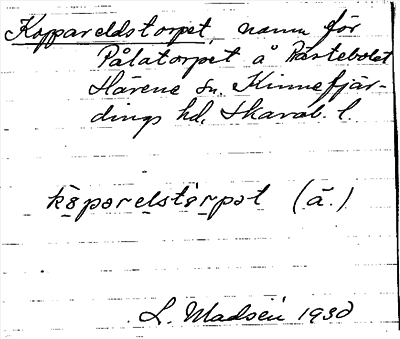 Koppareldstorpet, namn för
Pålatorpet å Prästebolet
Härene sn. Kinnefjär-
dings hd. Skarab. l.
kåparelstårpat (ä.)
L. Madsén 1930